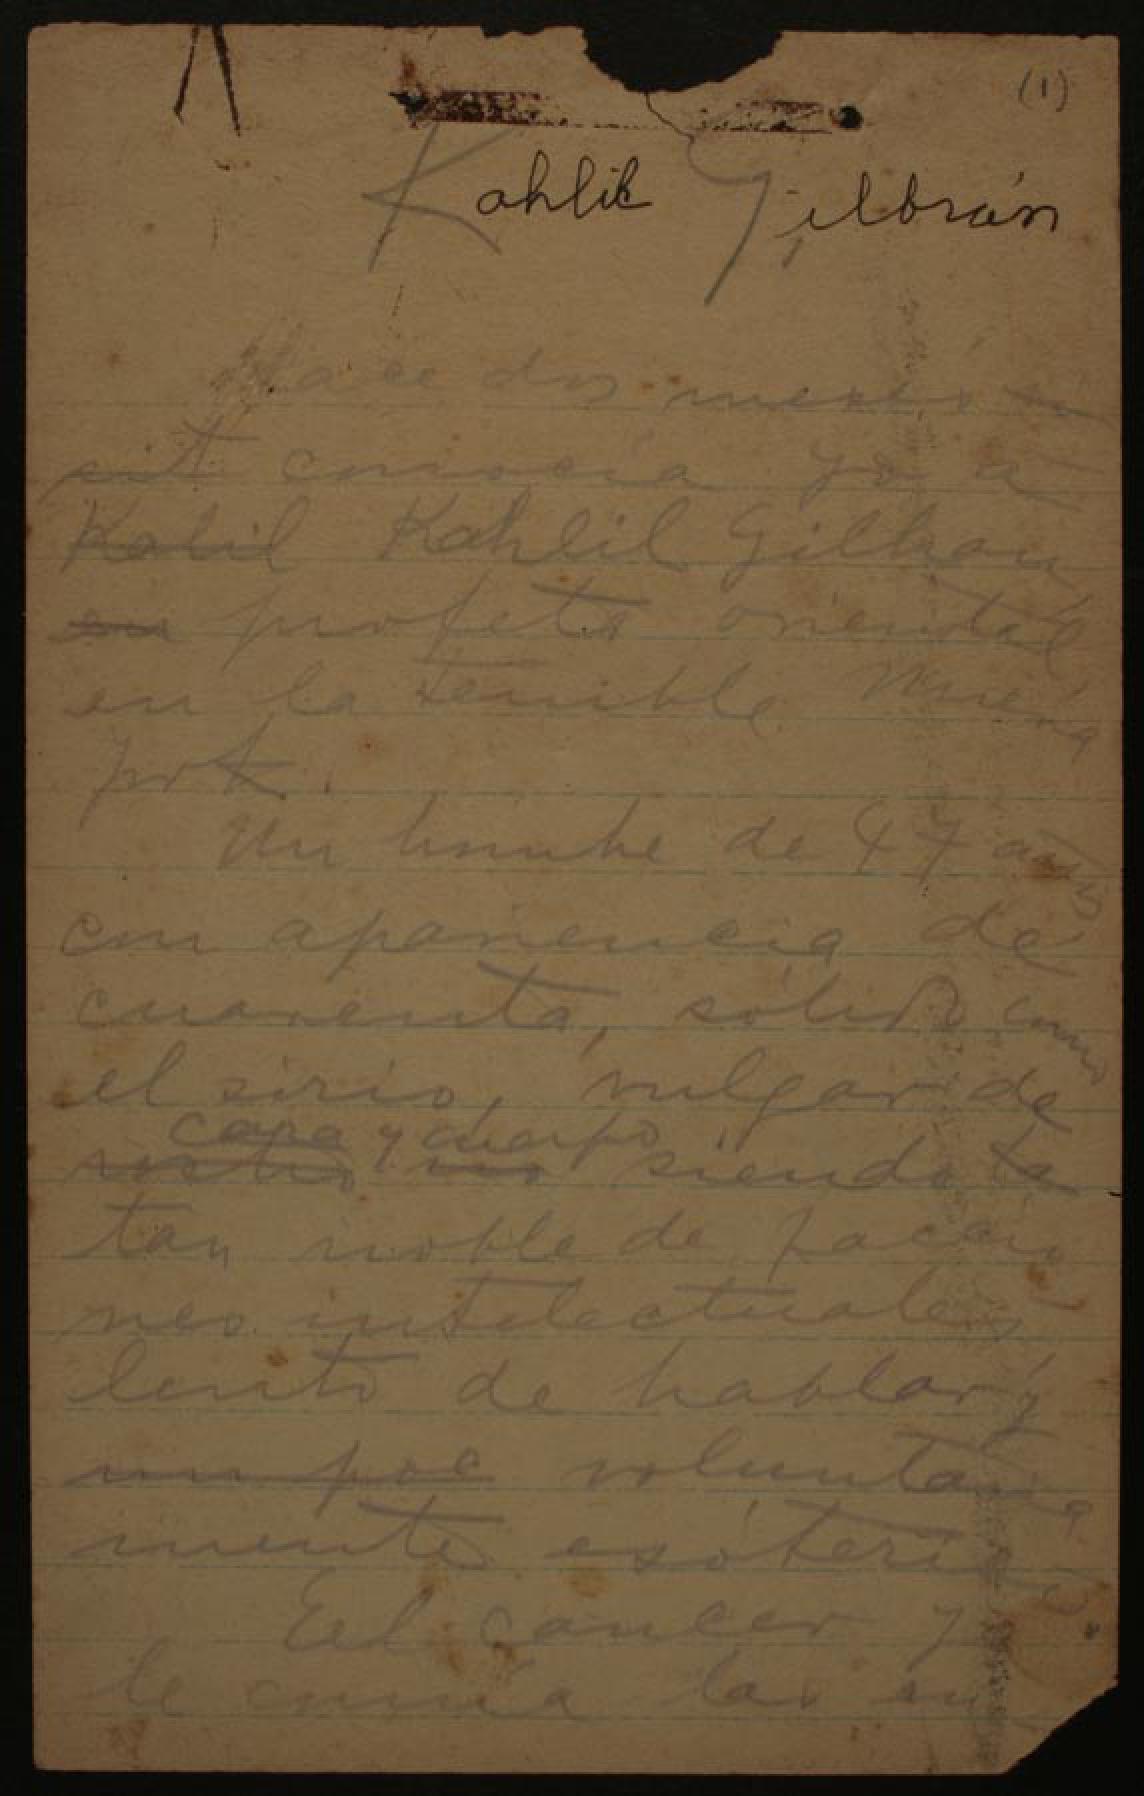 (1)
Kahlil Gilbrán
Hace dos meses
conocía yo a
Kalil Kahlil Gilbran
en profeta oriental
en la terrible Nueva
York.
Un hombre de 47 años
con apariencia de
cuarenta, sólido como
el sirio, vulgar de
cara y cuerpo
rostro no siendo ta
tan noble de faccio
nes intelectuales
lento de hablar y
un poc voluntaria
mente esóterico.
El cancer y
le comía las